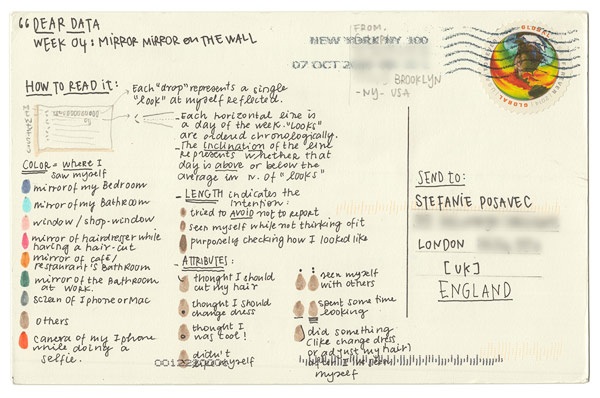 “DEAR DATA
WEEK 04: MIRROR MIRROR ON THE WALL
FROM.
NEW YORK NY 100
07 OCT
BROOKLYN
-NY- USA
GLOBAL
GLOBAL
HOW TO READ IT:
Each "drop" represents a single
"look" at myself reflected.
- Each horizontal line is
a day of the week. "Looks"
are ordered chronologically.
- The inclination of the line
represents whether that
day is above or below the
average in n. of "looks"
COLOR = where I
saw myself
mirror of my Bedroom
mirror of my Bathroom
window / shop-window
mirror of hairdresser while
having a hair-cut
mirror of café/
restaurant's BathRoom
mirror of the Bathroom
at work.
screen of Iphone or Mac
others
camera of my Iphone
while doing a
selfie.
- LENGTH indicates the
intention:
tried to AVOID not to report
seen myself while not thinking of it
purposely checking how I looked like
ATTRIBUTES:
thought I should
cut my hair
thought I should
change dress
thought I
was too!
didn't
myself
seen myself
with others
spent some time
looking
did something
(like change dress
or adjust my hair)
myself
SEND TO:
STEFANIE POSAVEC
LONDON
[UK]
ENGLAND